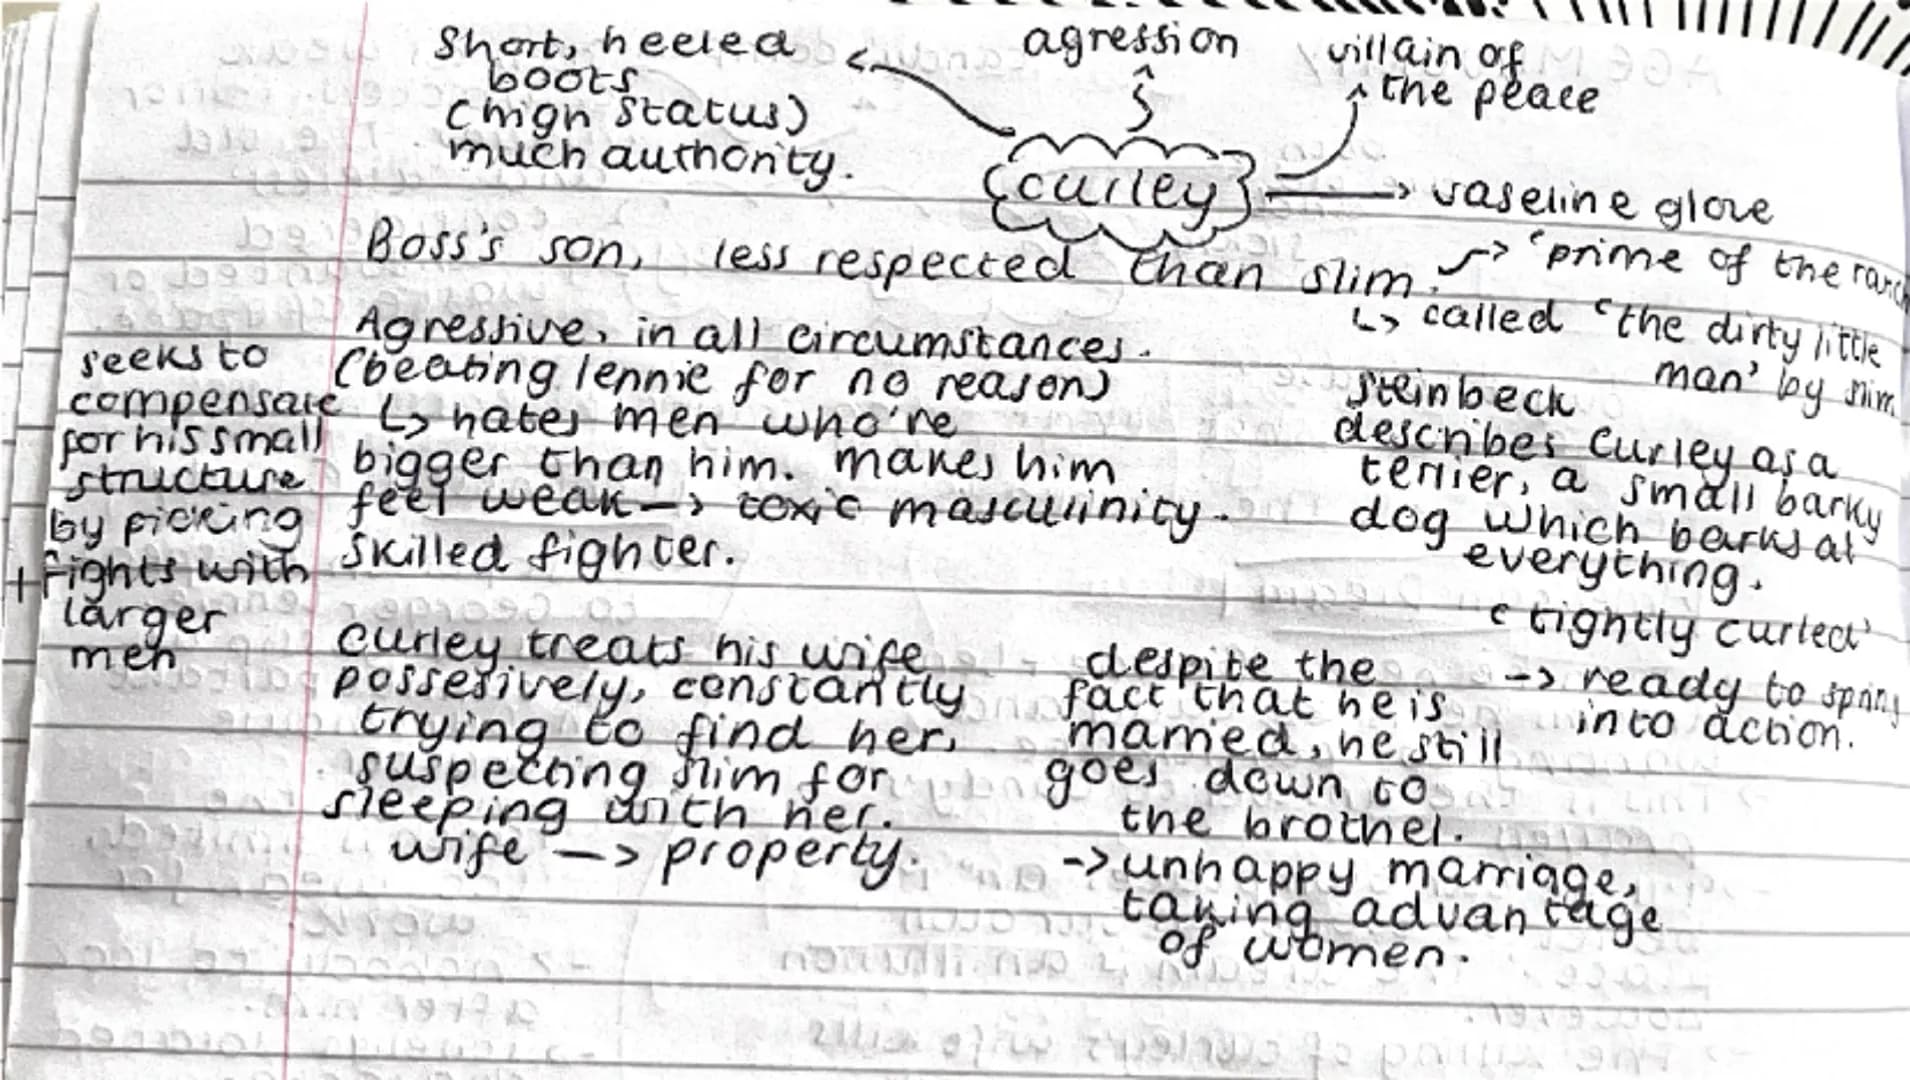 Short, heeled
boots
(high status)
much authority.
agression
villain of
the peace
curley
vaseline glove
Boss's son, less respected than slim.
'prime of the ranch
called 'the dirty little
man' by slim
Agressive, in all circumstances.
(beating lennie for no reason)
hates men who're
bigger than him. makes him
feel weak -> toxic masculinity.
skilled fighter.
seeks to
compensate
for his small
structure
by picking
+ fights with
larger
men
Steinbeck
describes Curley as a
terrier, a small barky
dog which barks at
everything.
'tightly curled'
-> ready to spring
into action.
Curley treats his wife
possesively, constantly
trying to find her,
suspecting slim for
sleeping with her.
wife -> property.
despite the
fact that he is
married, he still
goes down to
the brothel.
-> unhappy marriage,
taking advantage
of women.